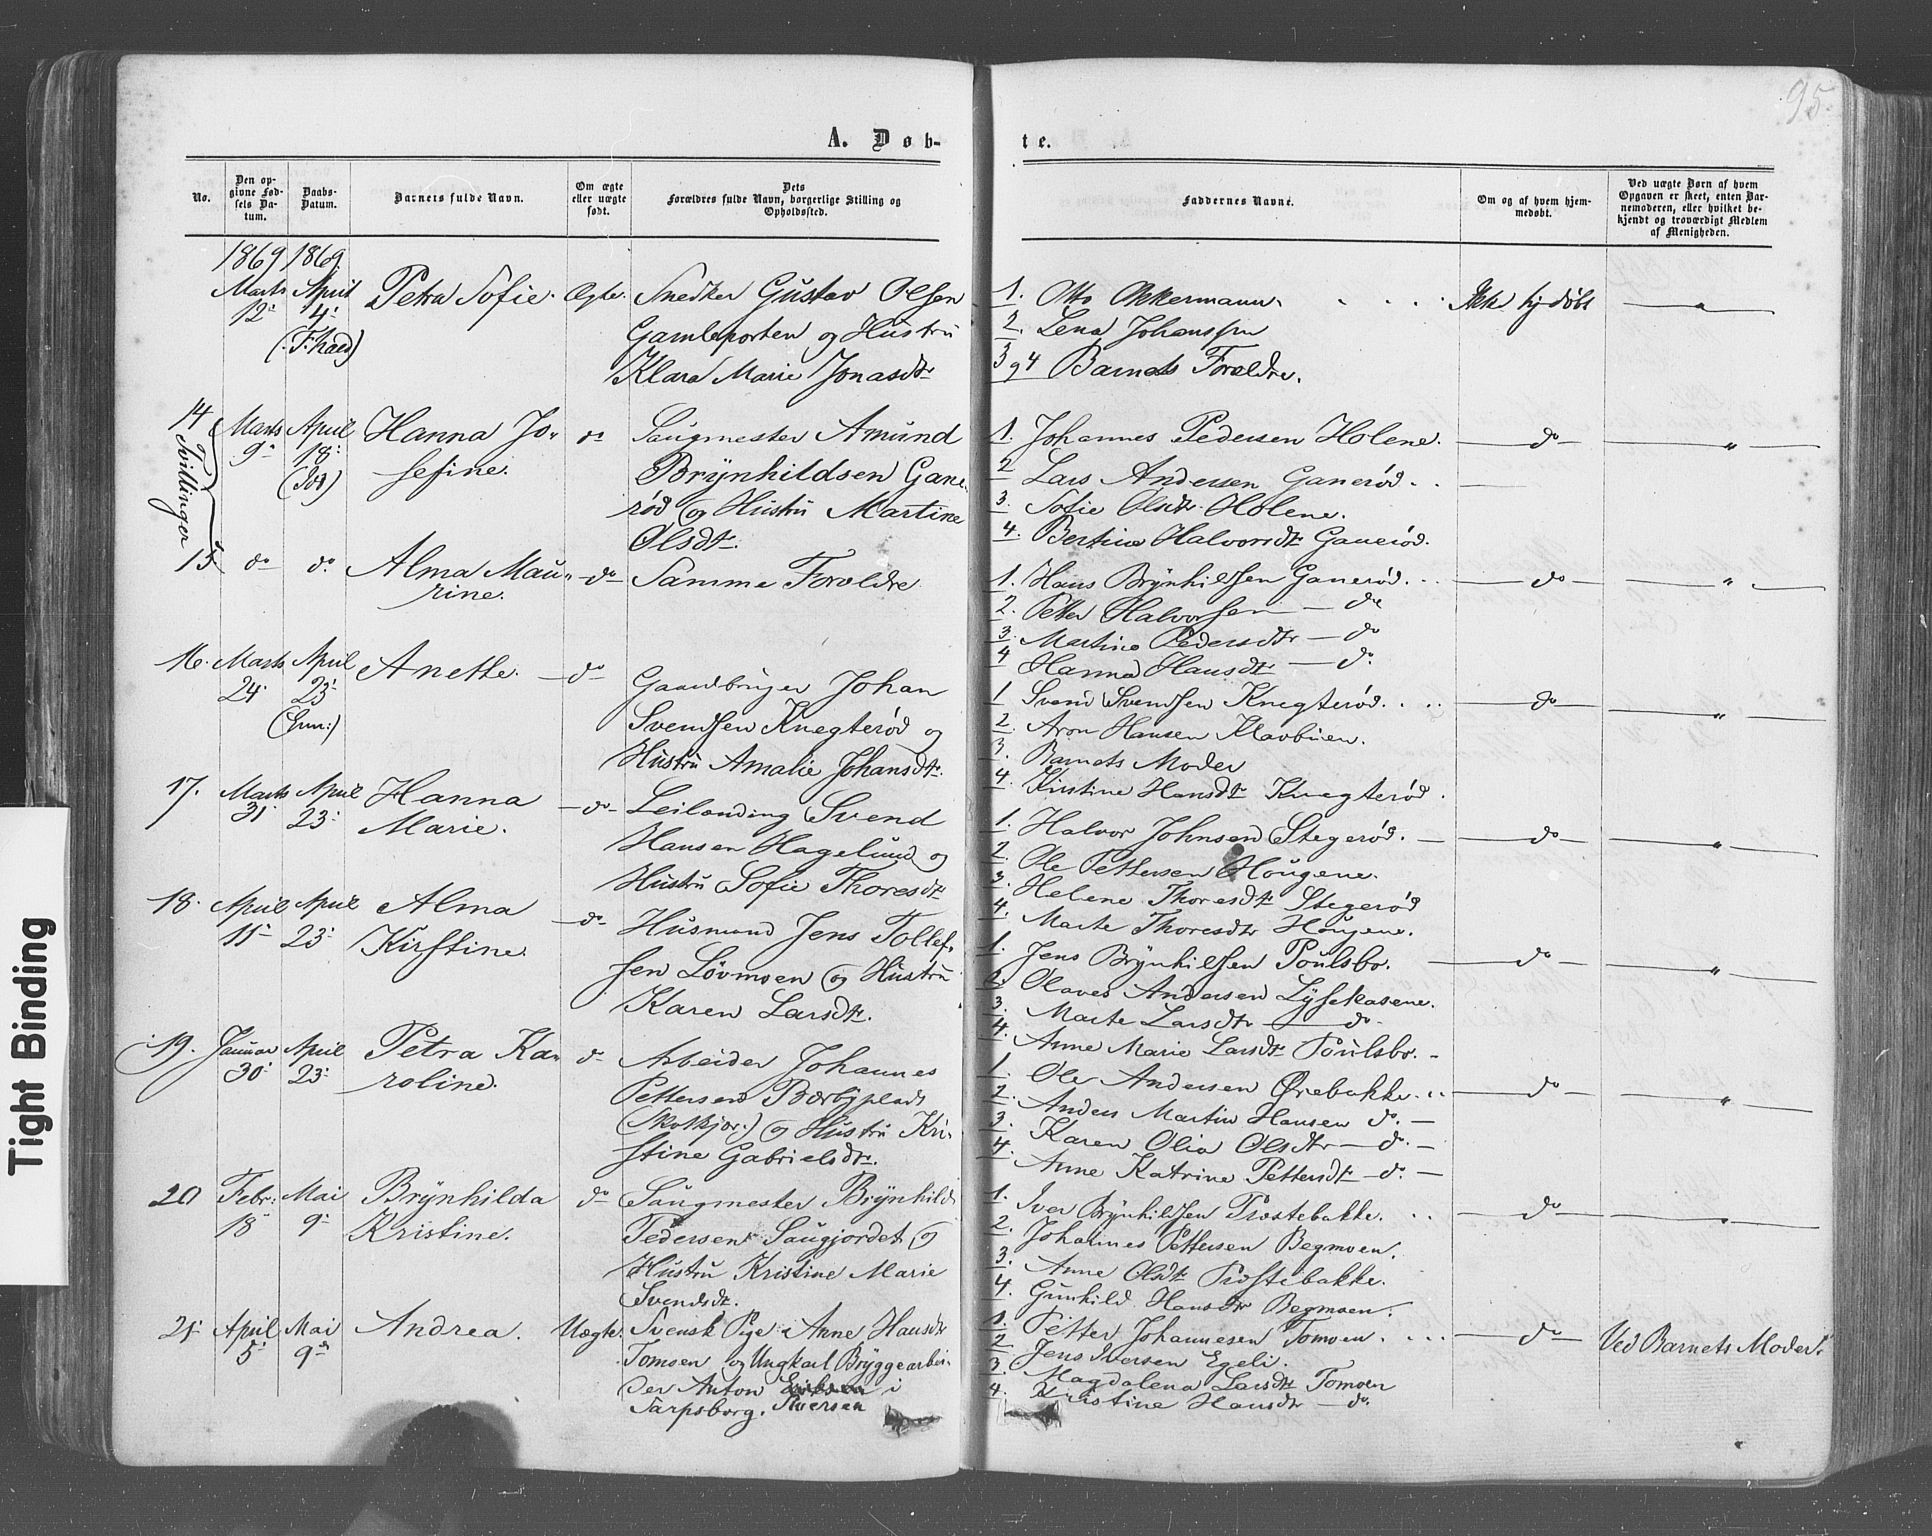 95.
A. Døb-
te.
No.
Den op-
givne Fød-
sels Da-
tum.
Daabs-
Datum.
Barnets fulde Navn.
Om ægte
eller uægte
født.
Dets
Forældres fulde Navn, borgerlige Stilling og
Opholdssted.
Faddernes Navne.
Om og af hvem hjem-
medøbt.
Ved uægte Børn af hvem
Opgaven er skeet, enten Bar-
nemoderen, eller hvilket be-
kjendt og troværdigt Medlem
af Menigheden.
1869 1869
Marts 12. April 4. Petra Sofie. Ægte. Snedker Gustav Olsen
Gamleporten og Hustru
Klara Marie Jonasdtr
1. Otto Akkermann. Ikke hj. døbt "
2. Lena Johanssen
3 og 4 Barnets Forældre.
14 Tvillinger Marts 9 April 18. Hanna Jo-
sefine. do Saugmester Amund
Brynhildsen Gane-
rød og Hustru Martine
Olsdtr.
1. Johannes Pedersen Holene. do "
2 Lars Andersen Ganerød.
3. Sofie Olsdtr. Holene.
4. Bertine Halvorsdtr Ganerød.
15 do do. Alma Mau-
rine. do Samme Forældre
1. Hans Brynhilsen Ganerød. do "
2. Petter Halvorsen do
3. Martine Pedersdtr do
4 Hanna Hansdtr do.
16. Marts 24. April 23. Anette. do Gaardbruger Johan
Svendsen Knegterød og
Hustru Amalie Johansdtr.
1 Svend Svendsen Knegterød. do "
2. Aron Hansen Klavbuen.
3. Barnets Moder
4. Kirstine Hansdtr Knegterød.
17. Marts 31. April 23. Hanna
Marie. do Leilænding Svend
Hansen Hagelund og
Hustru Sofie Thoresdtr
1. Halvor Johnsen Stegerød. do "
2. Ole Pettersen Hougene.
3. Helene Thoresdtr Stegerød
4. Marte Thoresdtr Hougene.
18. April 11. April 23. Alma
Kirstine. do Husmand Jens Tollef-
sen Løvmoen og Hustru
Karen Larsdtr.
1. Jens Brynhilsen Poulsbo. do "
2. Olaves Andersen Lysekasene.
3. Marte Larsdtr do.
4. Anne Marie Larsdtr Poulsbo.
19. Januar 30. April 23. Petra Ka-
roline. do Arbeider Johannes
Pettersen Bærbyplads
(Skotkjor.) og Hustru Kri-
stine Gabrielsdtr.
1. Ole Andersen Ørebakke. do "
2. Anders Martin Hansen do.
3. Karen Olia Olsdtr do.
4. Anne Katrine Pettersdtr do.
20 Febr: 18 Mai 9. Brynhilda
Kristine. do Saugmester Brynhild
Pedersen Saugjordet og
Hustru Kristine Marie
Svendsdtr.
1. Iver Brynhilsen Præstebakke. do "
2. Johannes Pettersen Begmoen.
3. Anne Olsdtr Præstebakke.
4. Gunhild Hansdtr Begmoen.
21. April 5. Mai 9. Andrea. Uægte. Svensk Pige Anne Hansdtr
Tomoen og Ungkarl Bryggearbei-
der Anton i
Sarpsborg. Iversen
1. Petter Johannesen Tomoen. do Ved Barnets Moder.
2 Jens Iversen Egeli.
3. Magdalena Larsdtr Tomoen
4. Kristine Hansdtr do.
Tight Binding